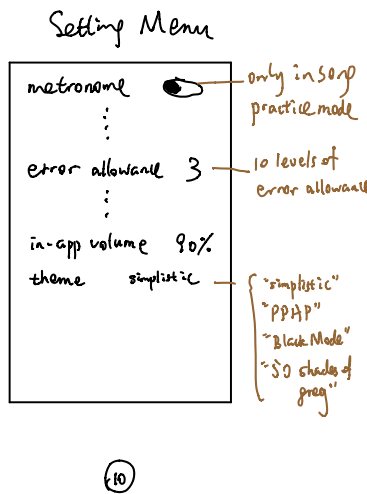 Setting Menu
metronome
only in song
practice mode
error allowance 3
10 levels of
error allowance
in-app volume 90%
theme simplistic
"simplistic"
"PPAP"
"Black Mode"
"50 shades of
grey"
10